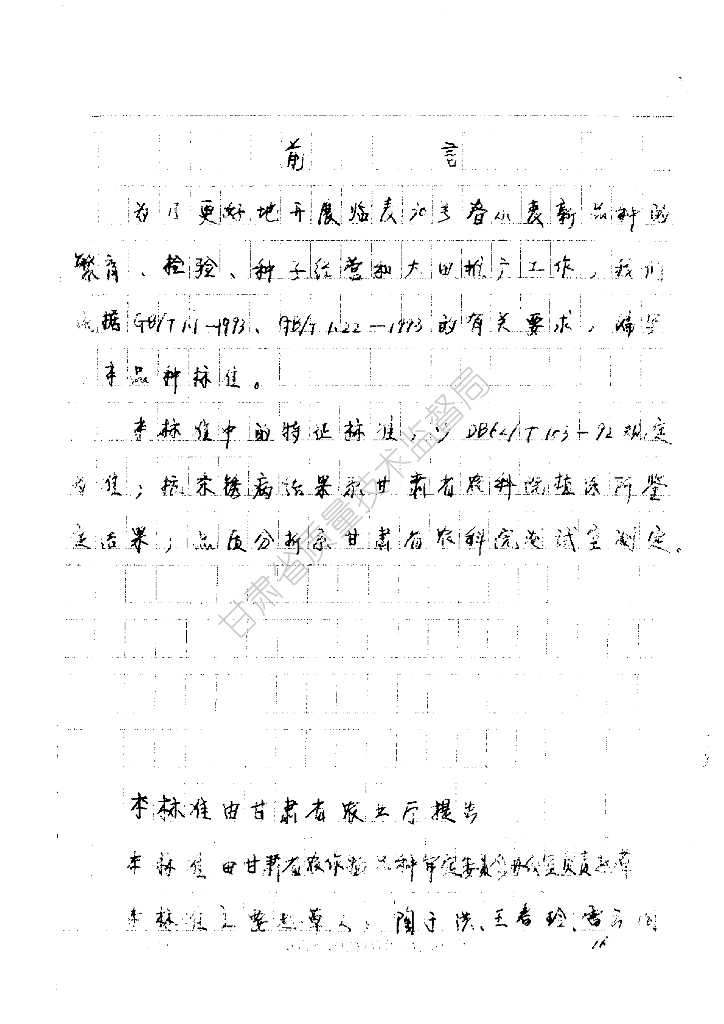 前 言
为了更好地开展临麦30号春小麦新品种的
繁育、检验、种子经营和大田推广工作，我们
根据GB/T1.1-1993、GB/T1.22-1993的有关要求，编
本品种标准。
本标准中的特征标准，以DB62/T153-92规定
为准；抗条锈病结果系甘肃省农科院植保所鉴
定结果；品质分析系甘肃省农科院测试室测定。
本标准由甘肃省农业厅提出
本标准由甘肃省农作物品种审定委员会办公室负责起草
本标准主要起草人：陶子洪、王春玲、雷
16
甘肃省质量技术监督局